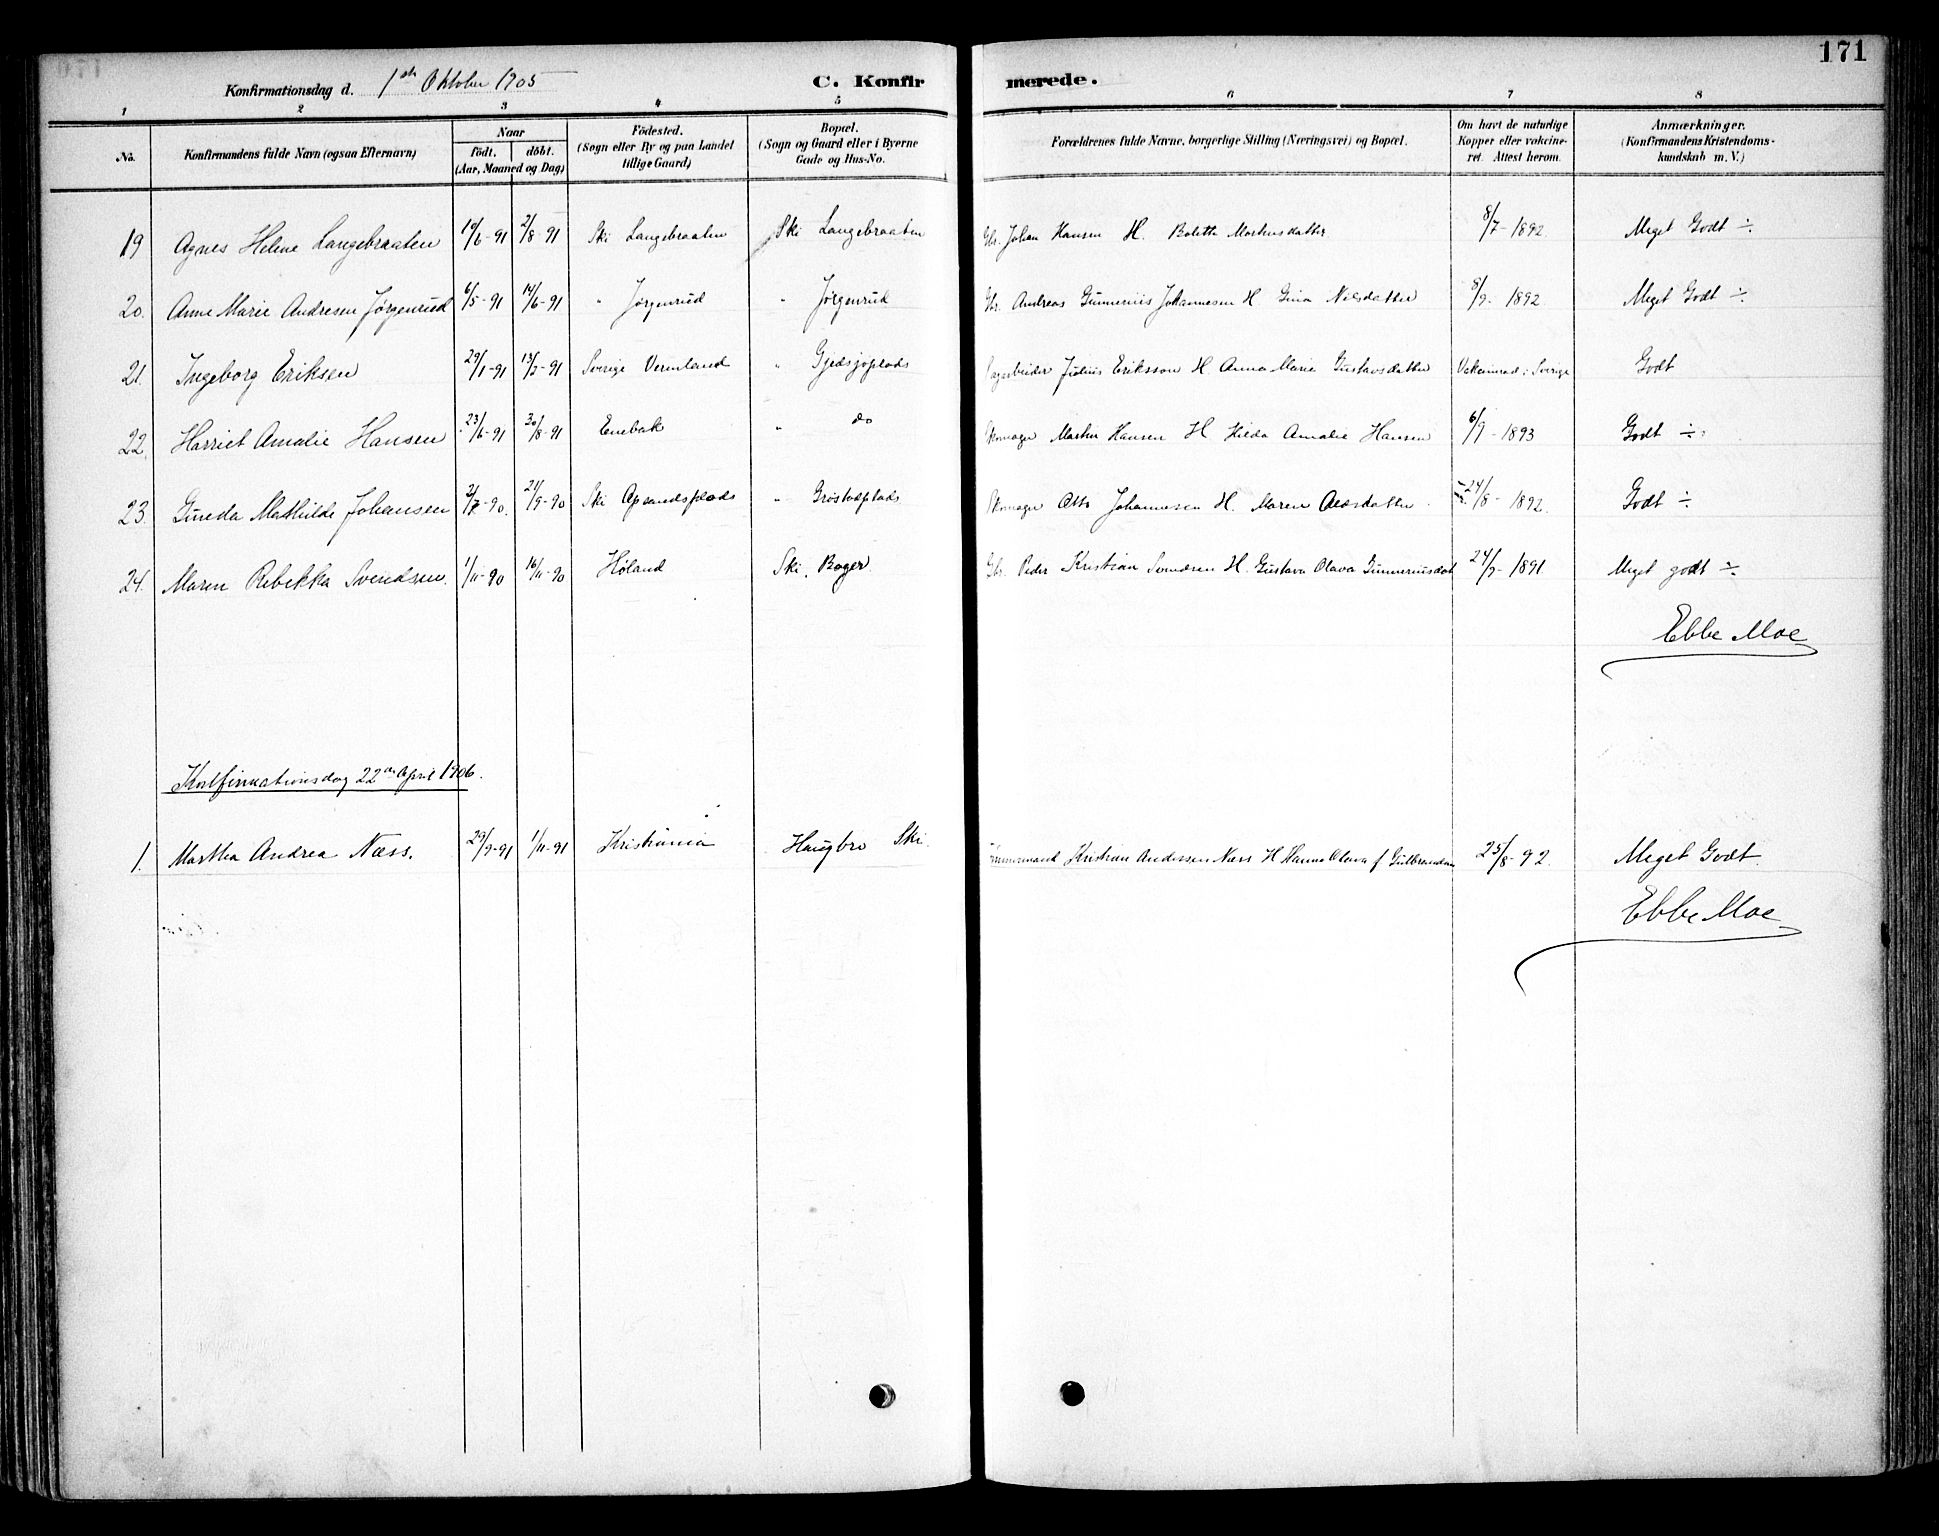 171
Konfirmationsdag d. 1ste Oktober 1905 C. Konfirmerede.
1 2 3 4 5 6 7 8
No. Konfirmandens fulde Navn (ogsaa Efternavn) Naar født. døbt. (Aar, Maaned og Dag) Fødested. (Sogn eller By og paa Landet tillige Gaard) Bopæl. (Sogn og Gaard eller i Byerne Gade og Hus-No. Forældrenes fulde Navne, borgerlige Stilling (Næringsvei) og Bopæl. Om havt de naturlige Kopper eller vakcineret. Attest herom. Anmærkninger. (Konfirmandens Kristendomskundskab m. V.)
19 Agnes Helene Langebraaten 19/6-91 2/8-91 Ski Langebraaten Ski Langebraaten Gbr. Johan Hansen H. Bolette Martinsdatter 8/7-1892. Meget Godt ÷
20. Anne Marie Andresen Jørgenrud 6/5-91 14/6-91 " Jørgenrud " Jørgenrud Gbr. Andreas Gunnerius Johannesen H Gina Nilsdatter 8/9-1892 Meget Godt ÷
21. Ingeborg Eriksen 29/1-91 13/2-91 Sverige Vermland " Gjedsjøplads Julius Eriksson H Anna Marie Gustavsdatter Vakcinerad i Sverige Godt
22. Harriet Amalie Hansen 23/6-91 30/8-91 Enebak " do Skomager Martin Hansen H Hilda Amalie Hansen 6/9-1893 Godt ÷
23. Guneda Mathilde Johansen -90. 21/9-90 Ski " Skomager Otto Johannesen H. Maren 24/8-1892. Godt ÷
24. Maren Rebekka Svendsen. 1/11-90 16/11-90 Høland Ski. Boger Gbr. Peder Kristian Svendsen H. Gustava Olava Gunneriusdat 24/9-1891. Meget godt ÷
Ebbe Moe
Konfirmationsdag 22de April 1906.
1. Martha Andrea Næss. 29/9-91 1/11-91 Kristiania Haugbro Ski. Tømmermand Kristian Andersen Næss H Hanna Olava f Gulbrandsen 25/8-92. Meget Godt.
Ebbe Moe